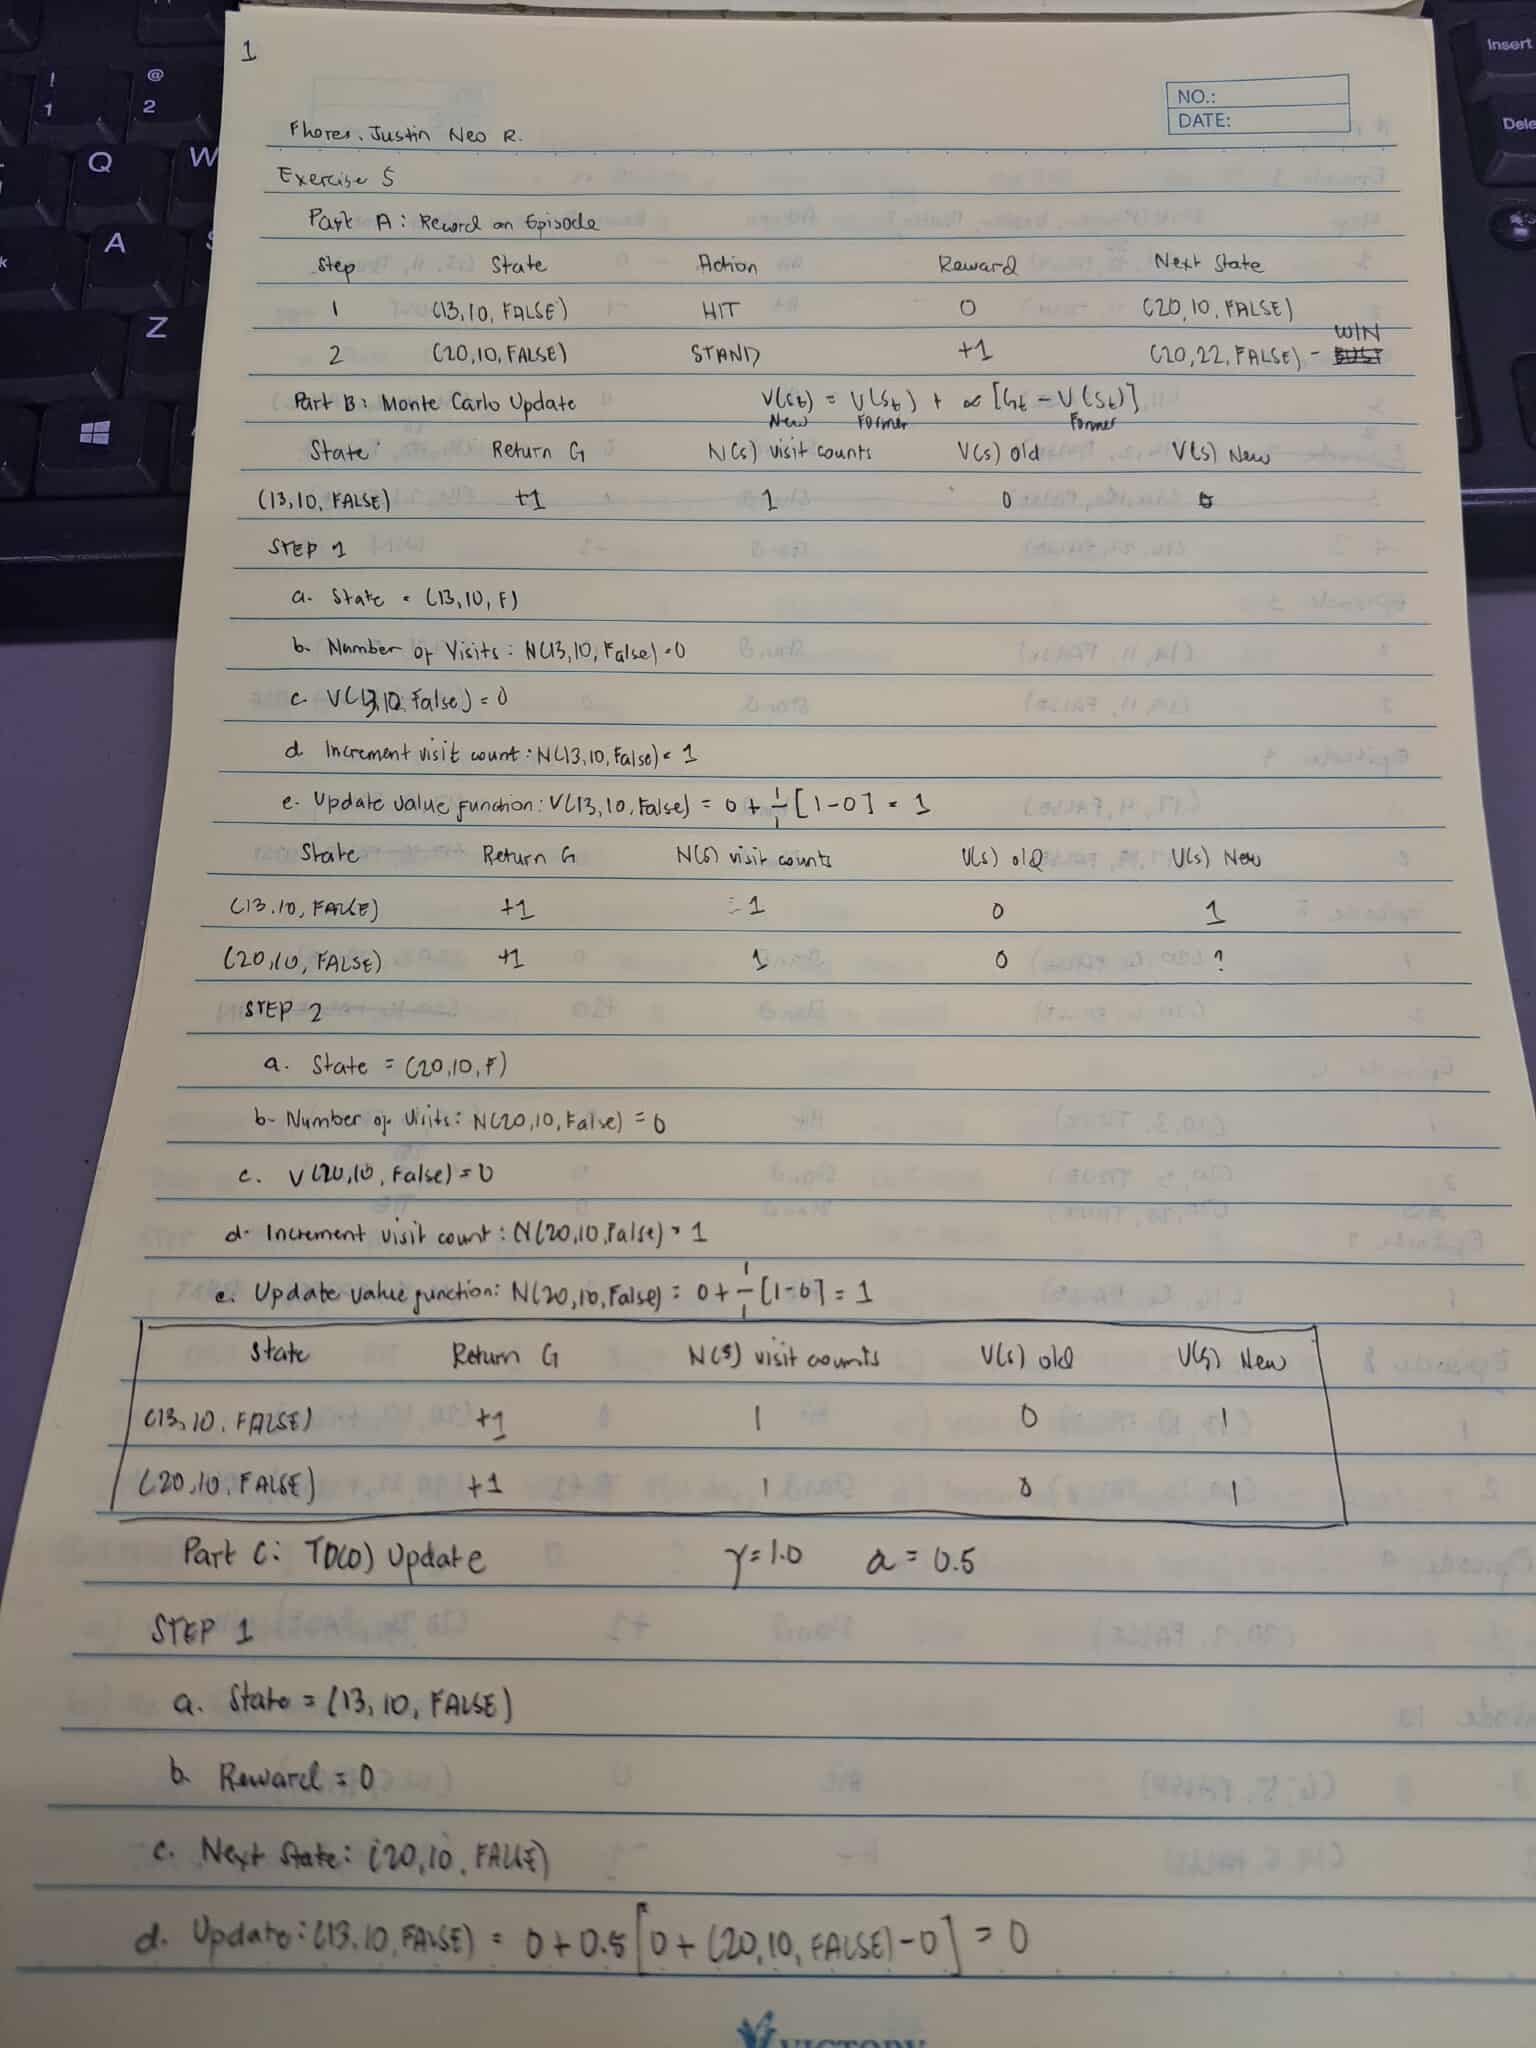 1
NO.:
DATE:
Flores, Justin Neo R.
Exercise 5
Part A: Record an Episode
Step State Action Reward Next State
1 (13,10, FALSE) HIT 0 (20,10, FALSE)
WIN
2 (20,10, FALSE) STAND +1 (20,22, FALSE) - BUST
Part B: Monte Carlo Update V(St) = V(St) + ∝ [Gt - V(St)]
New Former Former
State Return G N(s) visit counts V(s) old V(s) New
(13,10, FALSE) +1 1 0
STEP 1
a. State = (13,10, F)
b. Number of Visits: N(13,10, False) = 0
c. V(13,10, False) = 0
d. Increment visit count: N(13,10, False) = 1
e. Update value function: V(13,10, False) = 0 + 1/1 [1-0] = 1
State Return G N(s) visit counts V(s) old V(s) New
(13,10, FALSE) +1 1 0 1
(20,10, FALSE) +1 1 0 ?
STEP 2
a. State = (20,10, F)
b. Number of Visits: N(20,10, False) = 0
c. V(20,10, False) = 0
d. Increment visit count: N(20,10, False) = 1
e. Update value function: N(20,10, False) = 0 + 1/1 [1-0] = 1
State Return G N(s) visit counts V(s) old V(s) New
(13,10, FALSE) +1 1 0 1
(20,10, FALSE) +1 1 0 1
Part C: TD(0) Update γ=1.0 α=0.5
STEP 1
a. State = (13, 10, FALSE)
b. Reward = 0
c. Next State: (20,10, FALSE)
d. Update: (13,10, FALSE) = 0 + 0.5 [0 + (20,10, FALSE) - 0] = 0
VICTORY
! 1
@ 2
Q
W
A
Z
Insert